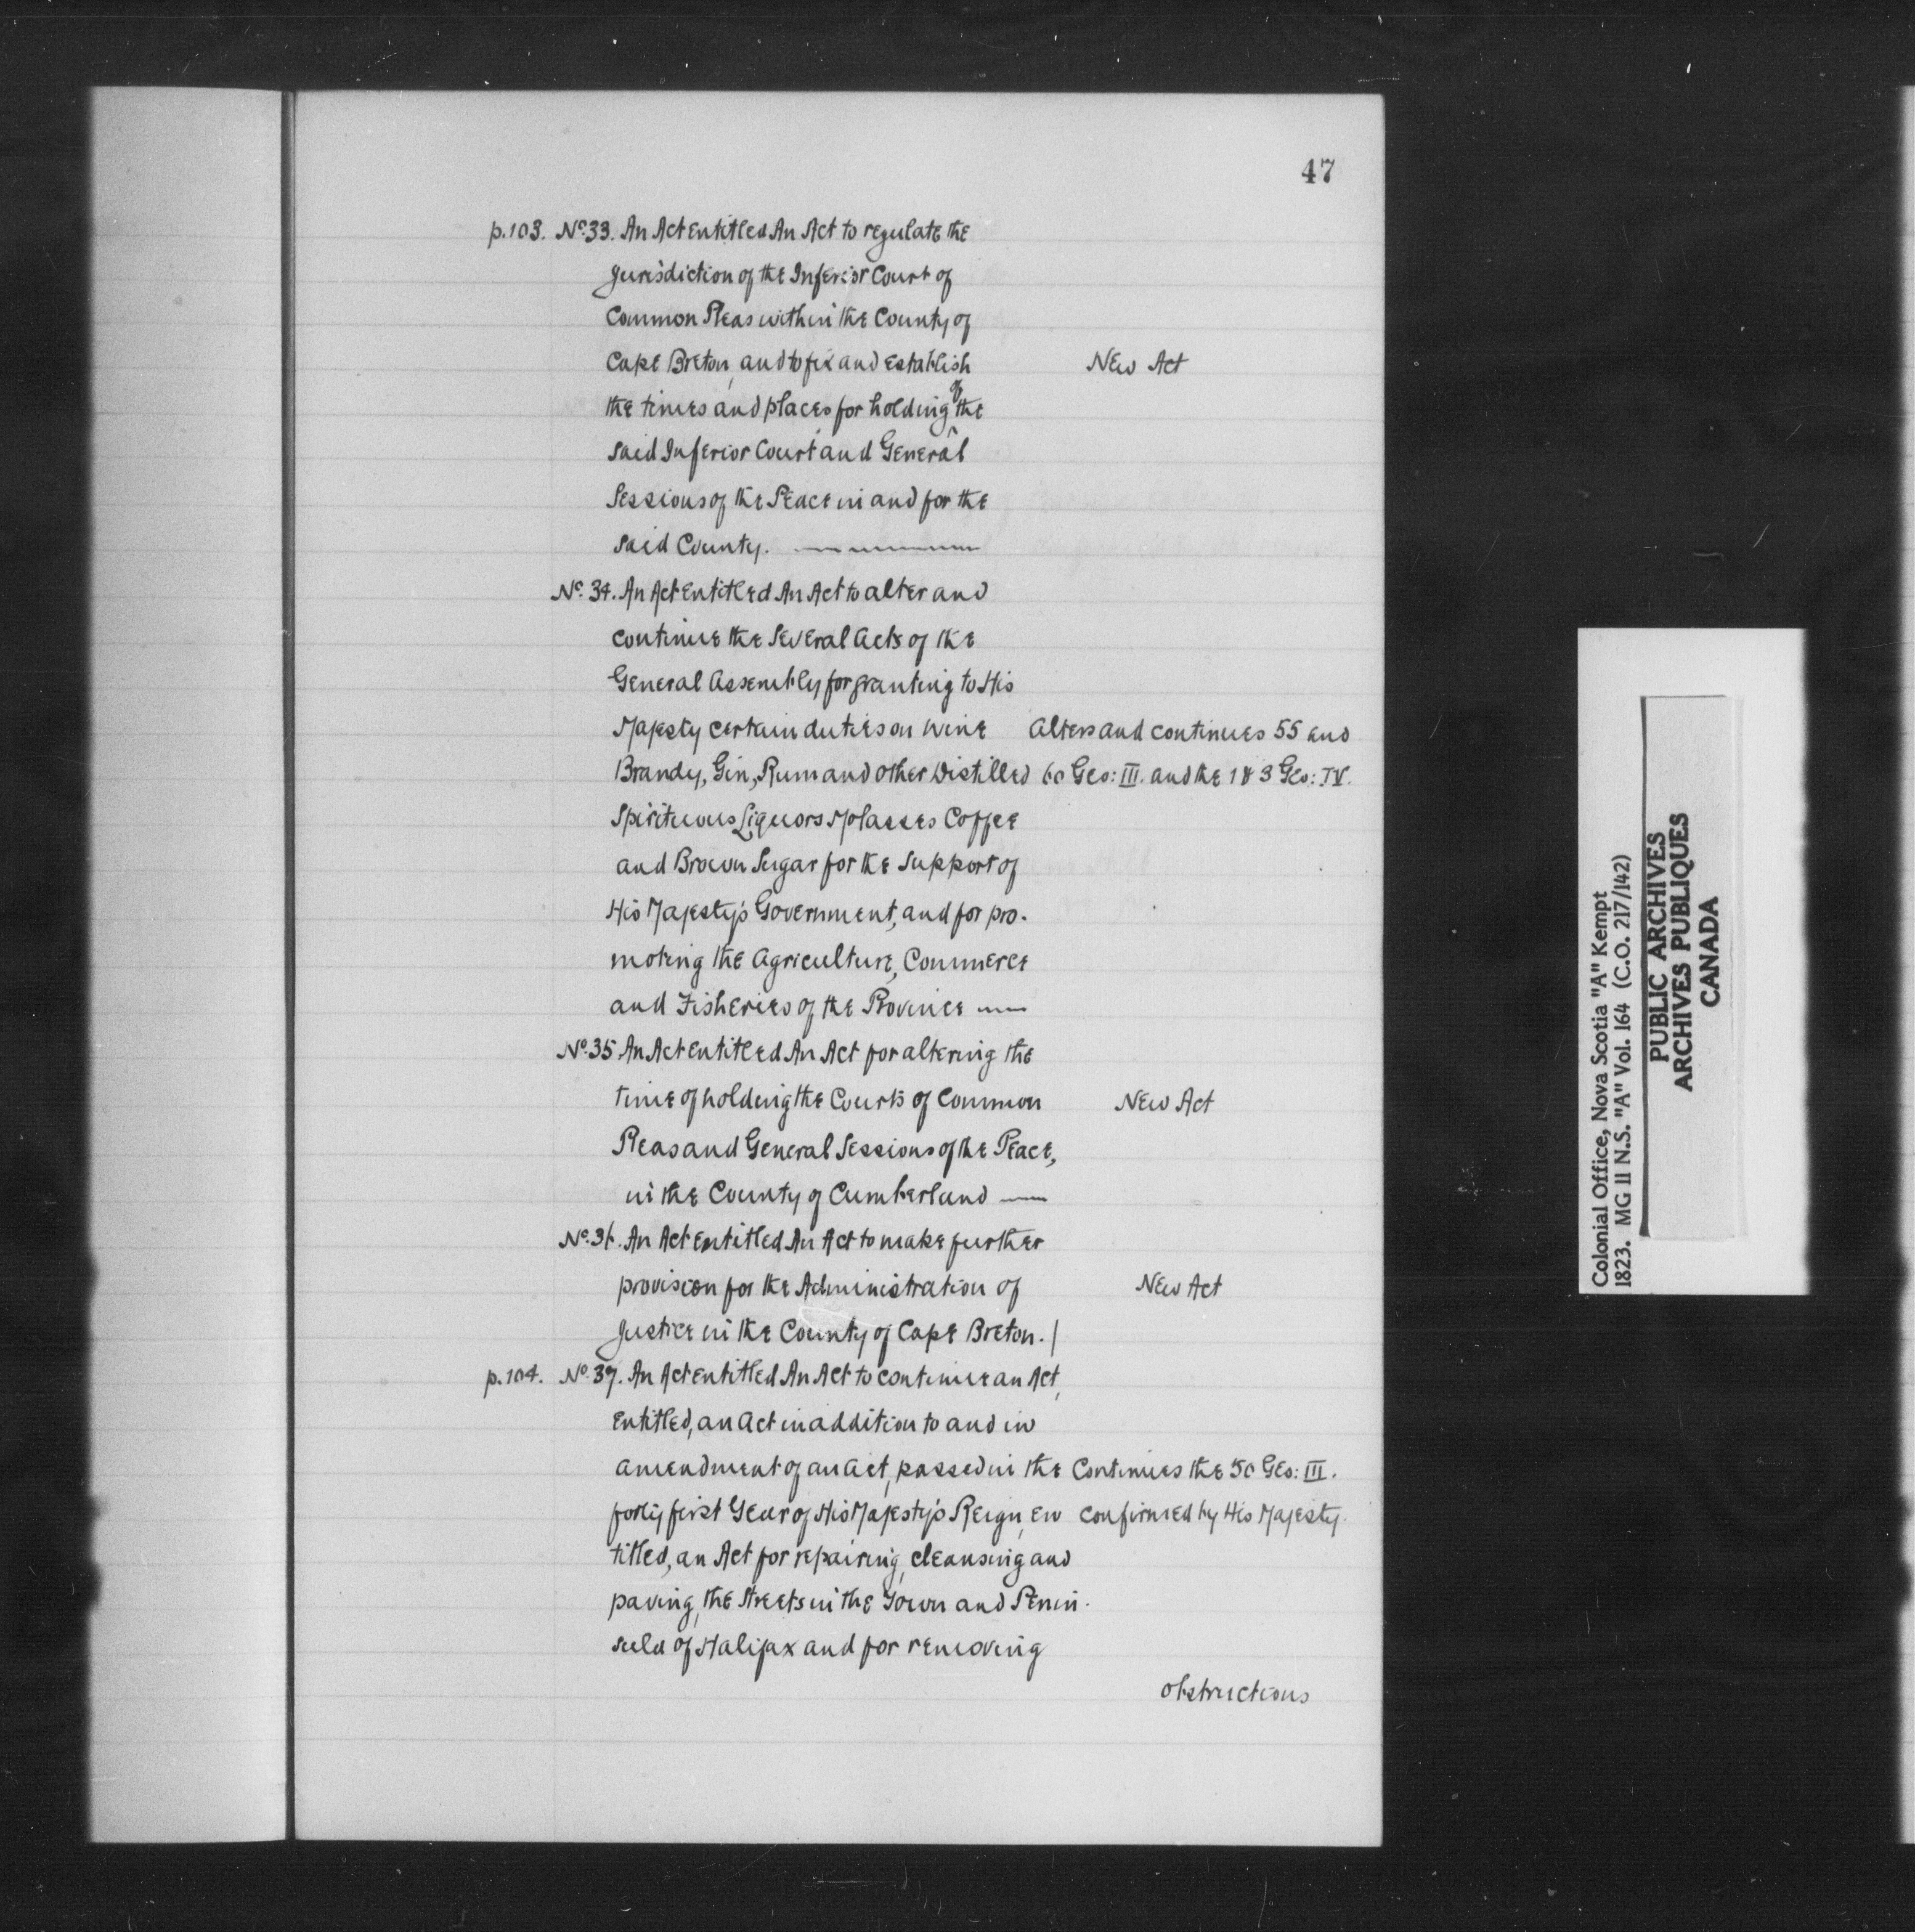 47
p.103. No. 33. An Act Entitled An Act to regulate the
Jurisdiction of the Inferior Court of
Common Pleas within the County of
Cape Breton, and to fix and establish New Act
the times and places for holding of the
said Inferior Court and General
Sessions of the Peace in and for the
said County.
No. 34. An Act Entitled An Act to alter and
continue the Several Acts of the
General Assembly for granting to His
Majesty certain duties on Wine Alters and continues 55 and
Brandy, Gin, Rum and other Distilled 60 Geo: III. and the 1 & 3 Geo: IV.
Spirituous Liquors Molasses Coffee
and Brown Sugar for the Support of
His Majesty's Government, and for pro-
moting the Agriculture, Commerce
and Fisheries of the Province
No. 35 An Act Entitled An Act for altering the
time of holding the Courts of Common New Act
Pleas and General Sessions of the Peace,
in the County of Cumberland
No. 36. An Act Entitled An Act to make further
provision for the Administration of New Act
Justice in the County of Cape Breton. /
p.104. No. 37. An Act Entitled An Act to continue an Act,
Entitled, an Act in addition to and in
amendment of an Act, passed in the Continues the 50 Geo: III.
forty first Year of His Majesty's Reign, en confirmed by His Majesty.
titled, an Act for repairing, cleansing and
paving, the Streets in the Town and Penin-
sula of Halifax and for removing
obstructions
Colonial Office, Nova Scotia "A" Kempt
1823. MG 11 N.S. "A" Vol. 164 (C.O. 217/142)
PUBLIC ARCHIVES
ARCHIVES PUBLIQUES
CANADA